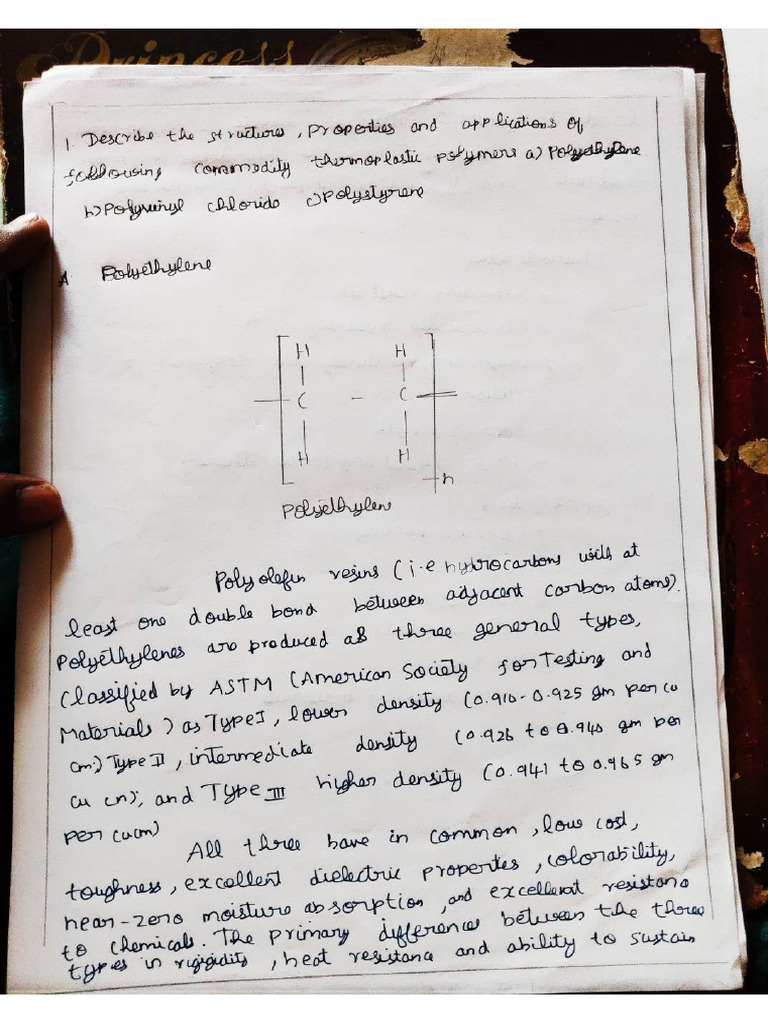 Princess
1. Describe the structures, properties and applications of
following commodity thermoplastic polymers a) polyethylene
b) polyvinyl chloride c) polystyrene
A Polyethylene
H H
C - C
H H
n
polyethylene
Polyolefin resins (i.e hydrocarbons with at
least one double bond between adjacent carbon atoms).
polyethylenes are produced as three general types,
classified by ASTM (American Society for Testing and
Materials) as Type I, lower density (0.910-0.925 gm per cu
cm.) Type II, intermediate density (0.926 to 0.940 gm per
cu cm); and TYPE III higher density (0.941 to 0.965 gm
per cu cm)
All three have in common, low cost,
toughness, excellent dielectric properties, colorability,
near-zero moisture absorption, and excellent resistana
to chemicals. The primary differences between the three
types in rigigidity, heat resistana and ability to sustain